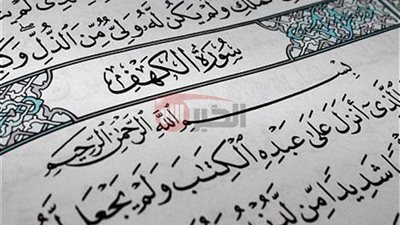 وَلَمْ يَكُن لَّهُ وَلِىٌّ مِّنَ ٱلذُّلِّ
سُورَةُ الكَهْفِ
بِسْمِ ٱللَّهِ ٱلرَّحْمَٰنِ ٱلرَّحِيمِ
الخبر
ٱلَّذِىٓ أَنزَلَ عَلَىٰ عَبْدِهِ ٱلْكِتَٰبَ وَلَمْ يَجْعَل
شَدِيدًا مِّن